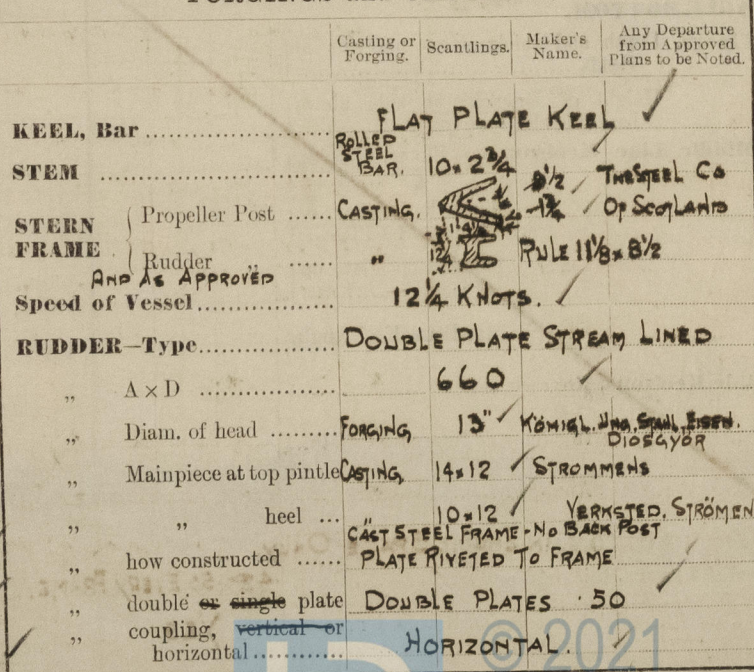 Casting or Forging. Scantlings. Maker's Name. Any Departure from Approved Plans to be Noted.
KEEL, Bar FLAT PLATE KEEL ✓
STEM ROLLED STEEL BAR. 10 x 2¾
THE STEEL CO
STERN FRAME { Propeller Post CASTING. OF SCOTLAND
Rudder „ „ RULE 11⅛ x 8½
AND AS APPROVED
Speed of Vessel 12¼ KNOTS. ✓
RUDDER—Type DOUBLE PLATE STREAM LINED
„ A × D 660 ✓
„ Diam. of head FORGING 13" ✓ KÖNIGL. UNG. STAHL. EISEN.
DIOSGYÖR
„ Mainpiece at top pintle CASTING, 14 x 12 ✓ STROMMENS
„ „ heel „ 10 x 12 ✓ VERKSTED. STRÖMEN
CAST STEEL FRAME - NO BACK POST
„ how constructed PLATE RIVETED TO FRAME
„ double or single plate DOUBLE PLATES .50 ✓
„ coupling, vertical or
horizontal HORIZONTAL. ✓
© 2021